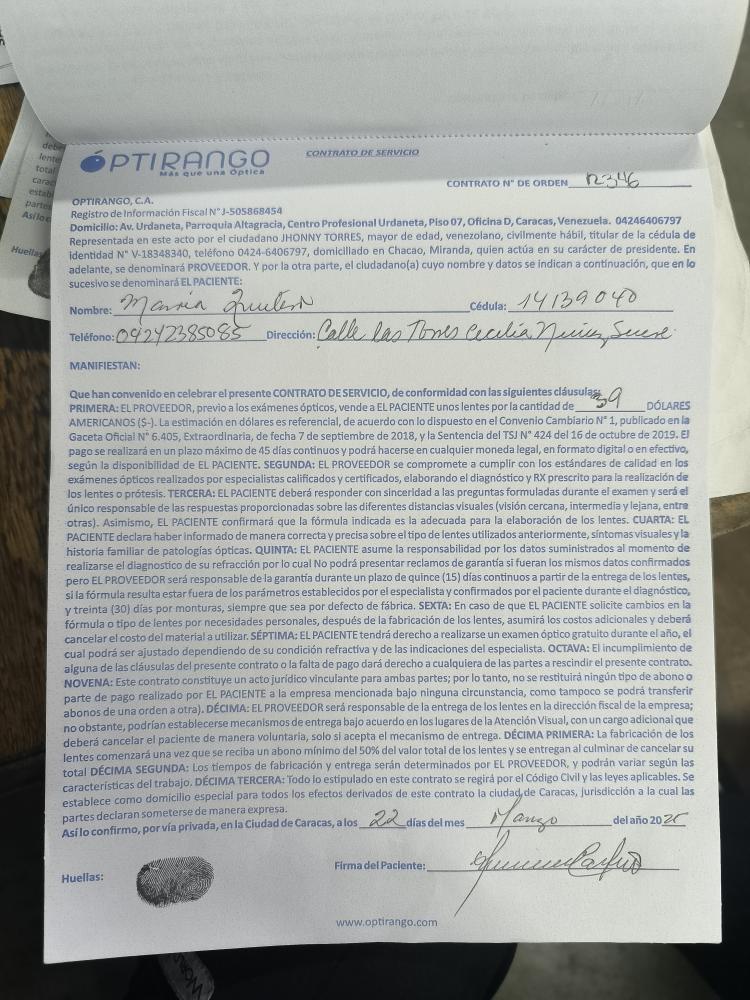 OPTIRANGO
Más que una Óptica
CONTRATO DE SERVICIO
CONTRATO N° DE ORDEN 12346
OPTIRANGO, C.A.
Registro de Información Fiscal N° J-505868454
Domicilio: Av. Urdaneta, Parroquia Altagracia, Centro Profesional Urdaneta, Piso 07, Oficina D, Caracas, Venezuela. 04246406797
Representada en este acto por el ciudadano JHONNY TORRES, mayor de edad, venezolano, civilmente hábil, titular de la cédula de
identidad N° V-18348340, teléfono 0424-6406797, domiciliado en Chacao, Miranda, quien actúa en su carácter de presidente. En
adelante, se denominará PROVEEDOR. Y por la otra parte, el ciudadano(a) cuyo nombre y datos se indican a continuación, que en lo
sucesivo se denominará EL PACIENTE:
Nombre: Maria Cédula: 14139040
Teléfono: 04242385085 Dirección: Calle las Torres Cecilia Nuñez, Sucre
MANIFIESTAN:
Que han convenido en celebrar el presente CONTRATO DE SERVICIO, de conformidad con las siguientes cláusulas:
PRIMERA: EL PROVEEDOR, previo a los exámenes ópticos, vende a EL PACIENTE unos lentes por la cantidad de 39 DÓLARES
AMERICANOS ($-). La estimación en dólares es referencial, de acuerdo con lo dispuesto en el Convenio Cambiario N° 1, publicado en la
Gaceta Oficial N° 6.405, Extraordinaria, de fecha 7 de septiembre de 2018, y la Sentencia del TSJ N° 424 del 16 de octubre de 2019. El
pago se realizará en un plazo máximo de 45 días continuos y podrá hacerse en cualquier moneda legal, en formato digital o en efectivo,
según la disponibilidad de EL PACIENTE. SEGUNDA: EL PROVEEDOR se compromete a cumplir con los estándares de calidad en los
exámenes ópticos realizados por especialistas calificados y certificados, elaborando el diagnóstico y RX prescrito para la realización de
los lentes o prótesis. TERCERA: EL PACIENTE deberá responder con sinceridad a las preguntas formuladas durante el examen y será el
único responsable de las respuestas proporcionadas sobre las diferentes distancias visuales (visión cercana, intermedia y lejana, entre
otras). Asimismo, EL PACIENTE confirmará que la fórmula indicada es la adecuada para la elaboración de los lentes. CUARTA: EL
PACIENTE declara haber informado de manera correcta y precisa sobre el tipo de lentes utilizados anteriormente, síntomas visuales y la
historia familiar de patologías ópticas. QUINTA: EL PACIENTE asume la responsabilidad por los datos suministrados al momento de
realizarse el diagnostico de su refracción por lo cual No podrá presentar reclamos de garantía si fueran los mismos datos confirmados
pero EL PROVEEDOR será responsable de la garantía durante un plazo de quince (15) días continuos a partir de la entrega de los lentes,
si la fórmula resulta estar fuera de los parámetros establecidos por el especialista y confirmados por el paciente durante el diagnóstico,
y treinta (30) días por monturas, siempre que sea por defecto de fábrica. SEXTA: En caso de que EL PACIENTE solicite cambios en la
fórmula o tipo de lentes por necesidades personales, después de la fabricación de los lentes, asumirá los costos adicionales y deberá
cancelar el costo del material a utilizar. SÉPTIMA: EL PACIENTE tendrá derecho a realizarse un examen óptico gratuito durante el año, el
cual podrá ser ajustado dependiendo de su condición refractiva y de las indicaciones del especialista. OCTAVA: El incumplimiento de
alguna de las cláusulas del presente contrato o la falta de pago dará derecho a cualquiera de las partes a rescindir el presente contrato.
NOVENA: Este contrato constituye un acto jurídico vinculante para ambas partes; por lo tanto, no se restituirá ningún tipo de abono o
parte de pago realizado por EL PACIENTE a la empresa mencionada bajo ninguna circunstancia, como tampoco se podrá transferir
abonos de una orden a otra). DÉCIMA: EL PROVEEDOR será responsable de la entrega de los lentes en la dirección fiscal de la empresa;
no obstante, podrían establecerse mecanismos de entrega bajo acuerdo en los lugares de la Atención Visual, con un cargo adicional que
deberá cancelar el paciente de manera voluntaria, solo si acepta el mecanismo de entrega. DÉCIMA PRIMERA: La fabricación de los
lentes comenzará una vez que se reciba un abono mínimo del 50% del valor total de los lentes y se entregan al culminar de cancelar su
total DÉCIMA SEGUNDA: Los tiempos de fabricación y entrega serán determinados por EL PROVEEDOR, y podrán variar según las
características del trabajo. DÉCIMA TERCERA: Todo lo estipulado en este contrato se regirá por el Código Civil y las leyes aplicables. Se
establece como domicilio especial para todos los efectos derivados de este contrato la ciudad de Caracas, jurisdicción a la cual las
partes declaran someterse de manera expresa.
Así lo confirmo, por vía privada, en la Ciudad de Caracas, a los 22 días del mes Marzo del año 2025
Huellas:
Firma del Paciente:
www.optirango.com